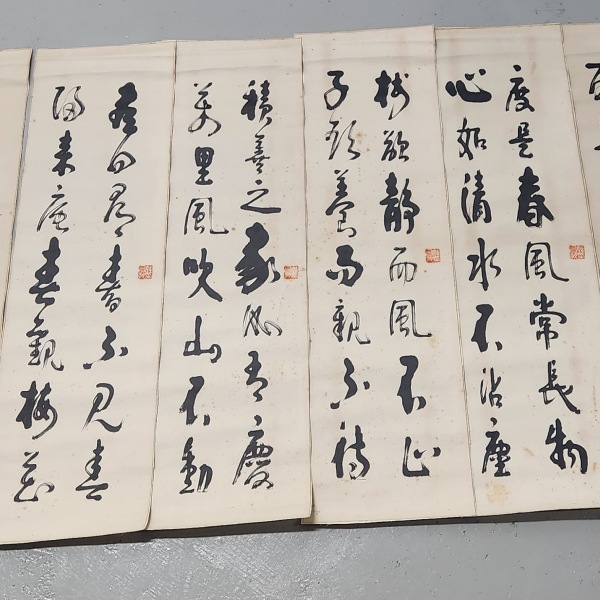 度是春風常長物
心如清水不沾塵
樹欲靜而風不止
子欲養而親不待
積善之家必有慶
萬里風吹山不動
盡日尋春不見春
歸來 觀梅花